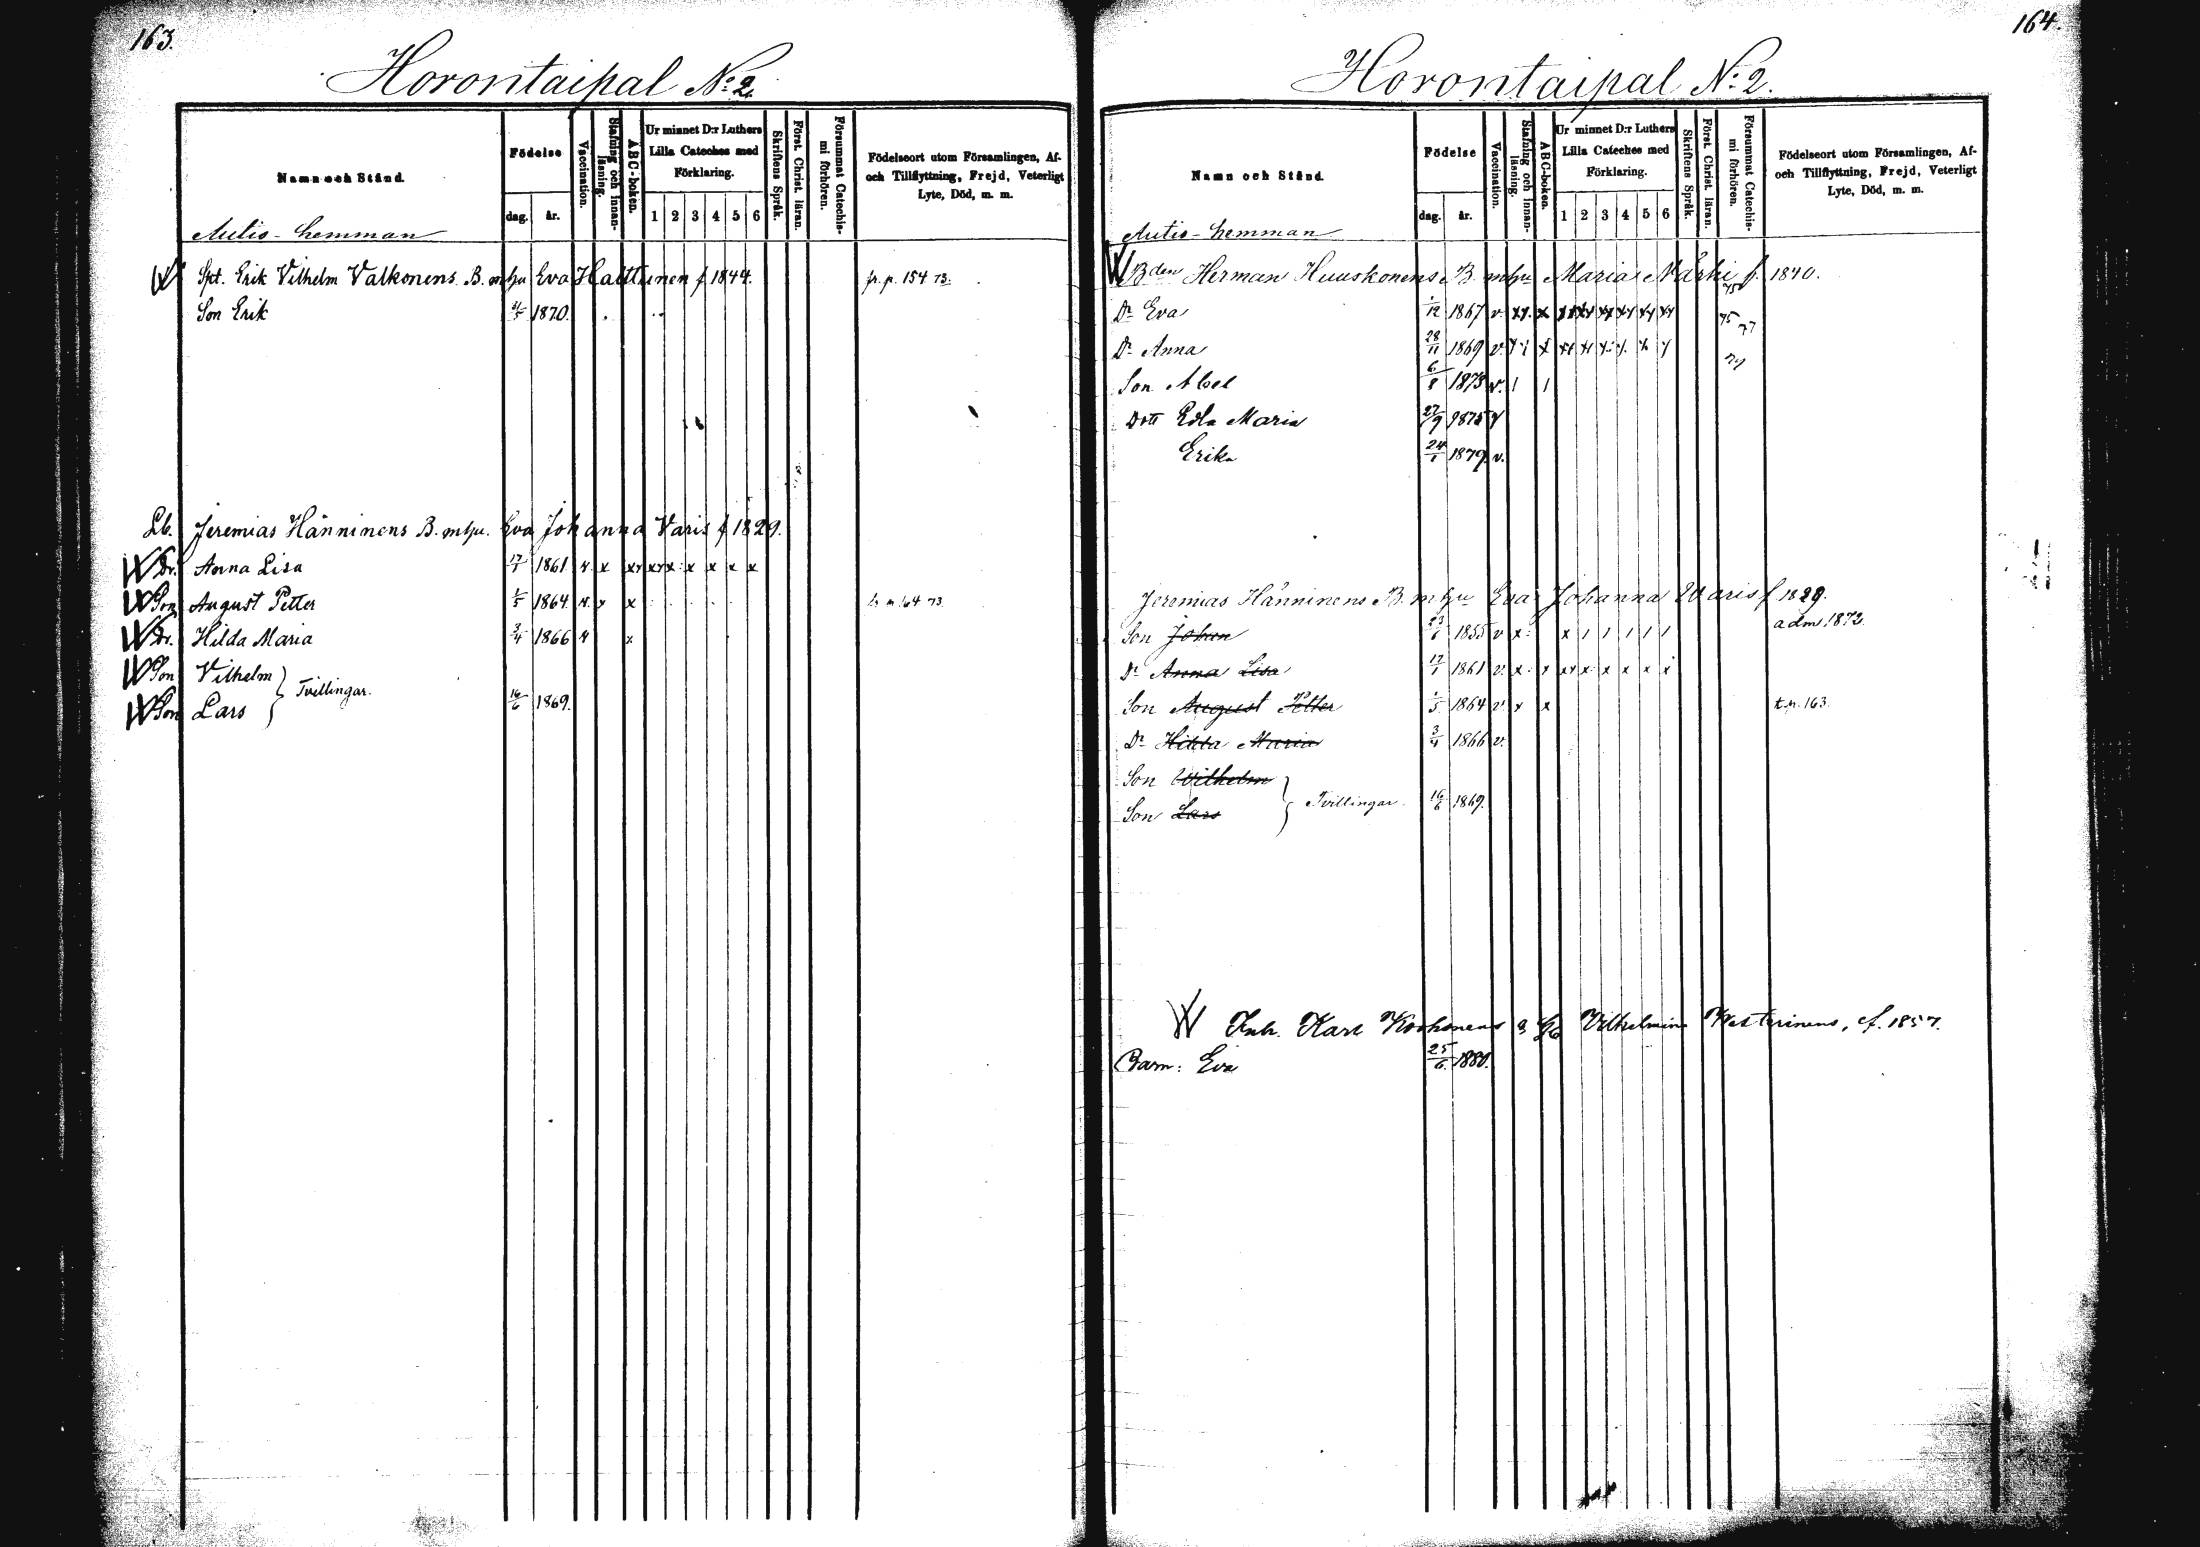 163.
Horontaipal No: 2.
Namn och Stånd.
Födelse
dag. år.
Vaccination.
Stafning och innanläsning.
ABC-boken.
Ur minnet D:r Luthers Lilla Cateches med Förklaring.
1 2 3 4 5 6
Skriftens Språk.
Först. Christ. läran.
Försummat Catechismi förhören.
Födelseort utom Församlingen, Af- och Tillflyttning, Frejd, Veterligt Lyte, Död, m. m.
Autio-hemman
Erik Vilhelm Valkonens B. m hu Eva Halttunen f 1844. fr. p. 154 73.
Son Erik 1870.
Lb. Jeremias Hänninens B. m hu. Eva Johanna Varis f 1829.
Dr. Anna Lisa 17/1 1861 v. x xx xx x x x x x
Son August Petter 1/5 1864 v. x x 164 73
Dr. Hilda Maria 3/4 1866 v x
Son Vilhelm } Tvillingar.
Son Lars 16/6 1869.
164.
Horontaipal No: 2.
Namn och Stånd.
Födelse
dag. år.
Vaccination.
Stafning och innanläsning.
ABC-boken.
Ur minnet D:r Luthers Lilla Cateches med Förklaring.
1 2 3 4 5 6
Skriftens Språk.
Först. Christ. läran.
Försummat Catechismi förhören.
Födelseort utom Församlingen, Af- och Tillflyttning, Frejd, Veterligt Lyte, Död, m. m.
Autio-hemman
Bden Herman Huuskonens B. m hu Maria Närhi f. 1840.
75
Dr Eva 1/12 1867 v. xx. x xx xx xx xx xx xx 75 77
Dr Anna 28/11 1869 v.
Son Abel 6/8 1873 v. / /
Dott Edla Maria 27/9 1875 v
Erika 24/1 1879. v.
Jeremias Hänninens B. m hu Eva Johanna Waris f 1829.
Son Johan 23/6 1855 v x: x / / / / / adm. 1872.
Dr Anna Lisa 17/1 1861 v. x: x xx x: x x x x
Son August Petter 1/5 1864 v. x x t. p. 163.
Dr Hilda Maria 3/4 1866 v.
Son Wilhelm } Tvillingar.
Son Lars 16/6 1869.
Inh. Karl Korhonens Vilhelmina Westerinens, f. 1857.
Barn: Eva 25/6. 1880.